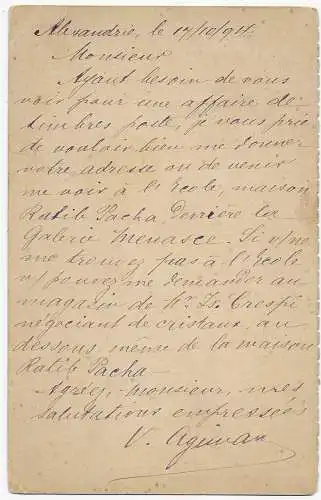 Alexandrie, le 17/10/94.
Monsieur
Ayant besoin de vous
voir pour une affaire de
timbres poste, je vous prie
de vouloir bien me donner
votre adresse ou de venir
me voir à l'Ecole, maison
Ratib Pacha Derrière la
Galerie Menasce. Si v/ ne
me trouvez pas à l'Ecole
v/ pouvez me demander au
magazin de Mr Is. Crespi
négociant de cristaux au
dessous même de la maison
Ratib Pacha.
Agréez, monsieur, mes
salutations empressées
V.